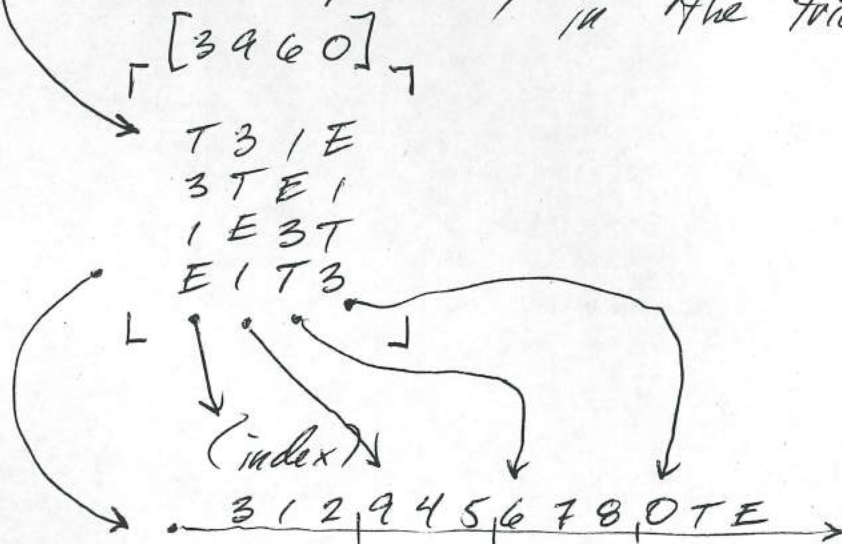 in the
[3 9 6 0]
T 3 1 E
3 T E 1
1 E 3 T
E 1 T 3
(index)
3 1 2 9 4 5 6 7 8 0 T E